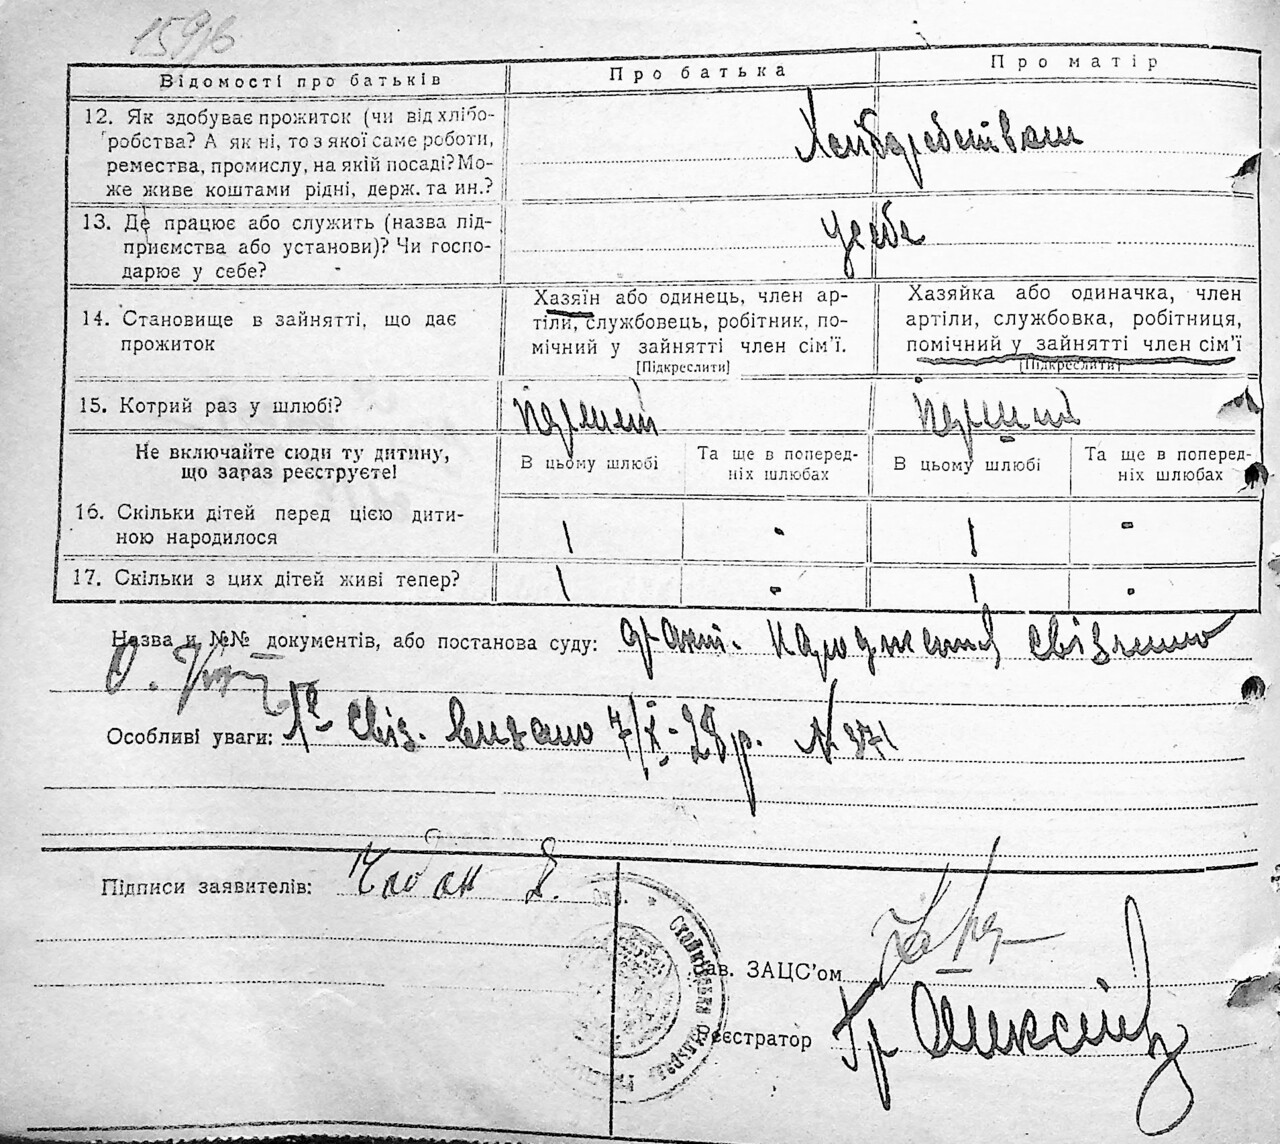 159/б
Відомості про батьків
Про батька
Про матір
12. Як здобуває прожиток (чи від хлібо-
робства? А як ні, то з якої саме роботи,
ремества, промислу, на якій посаді? Мо-
же живе коштами рідні, держ. та ин.?
13. Де працює або служить (назва під-
приємства або установи)? Чи госпо-
дарює у себе?
у себе
14. Становище в зайнятті, що дає
прожиток
Хазяїн або одинець, член ар-
тіли, службовець, робітник, по-
мічний у зайнятті член сім'ї.
[Підкреслити]
Хазяйка або одиначка, член
артіли, службовка, робітниця,
помічний у зайнятті член сім'ї
[Підкреслити]
15. Котрий раз у шлюбі?
перший
перший
Не включайте сюди ту дитину,
що зараз реєструєте!
В цьому шлюбі
Та ще в поперед-
ніх шлюбах
В цьому шлюбі
Та ще в поперед-
ніх шлюбах
16. Скільки дітей перед цією дити-
ною народилося
1 - 1 -
17. Скільки з цих дітей живі тепер?
1 - 1 -
Назва и №№ документів, або постанова суду:
О.
Особливі уваги: свіз. видано 7/X-28 р. N 371
Підписи заявителів: Чабан
Зав. ЗАЦС'ом
Реєстратор Гр